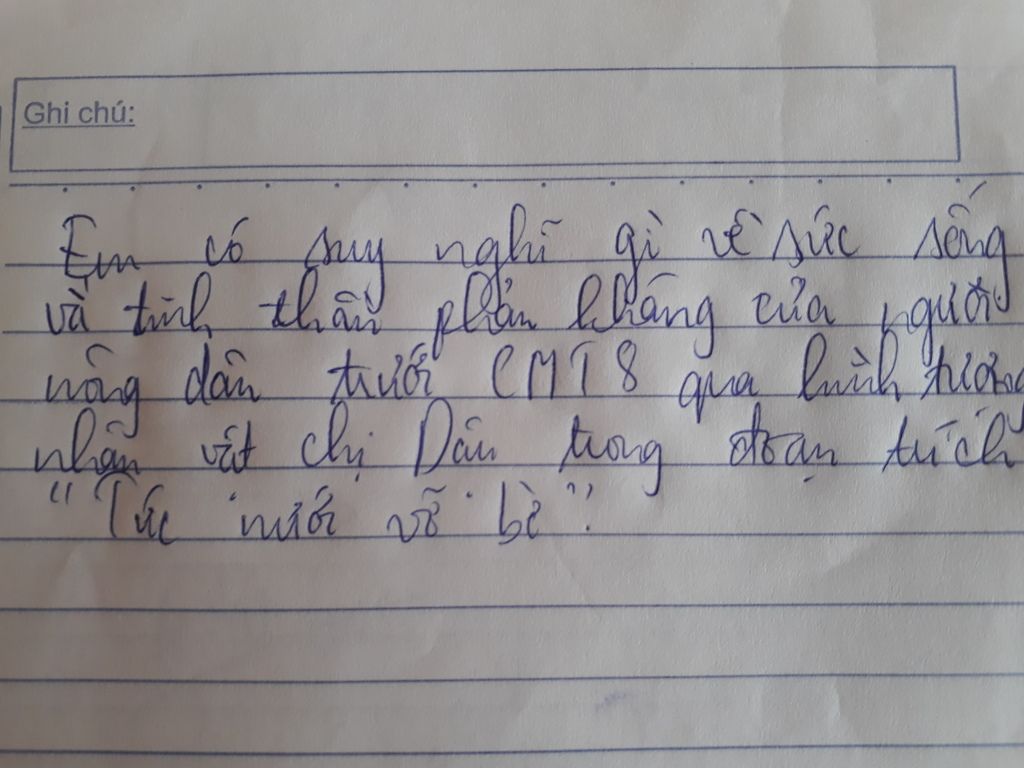 Ghi chú:
Em có suy nghĩ gì về sức sống
và tinh thần phản kháng của người
nông dân trước CMT8 qua hình tượng
nhân vật chị Dậu trong đoạn trích
"Tức nước vỡ bờ".